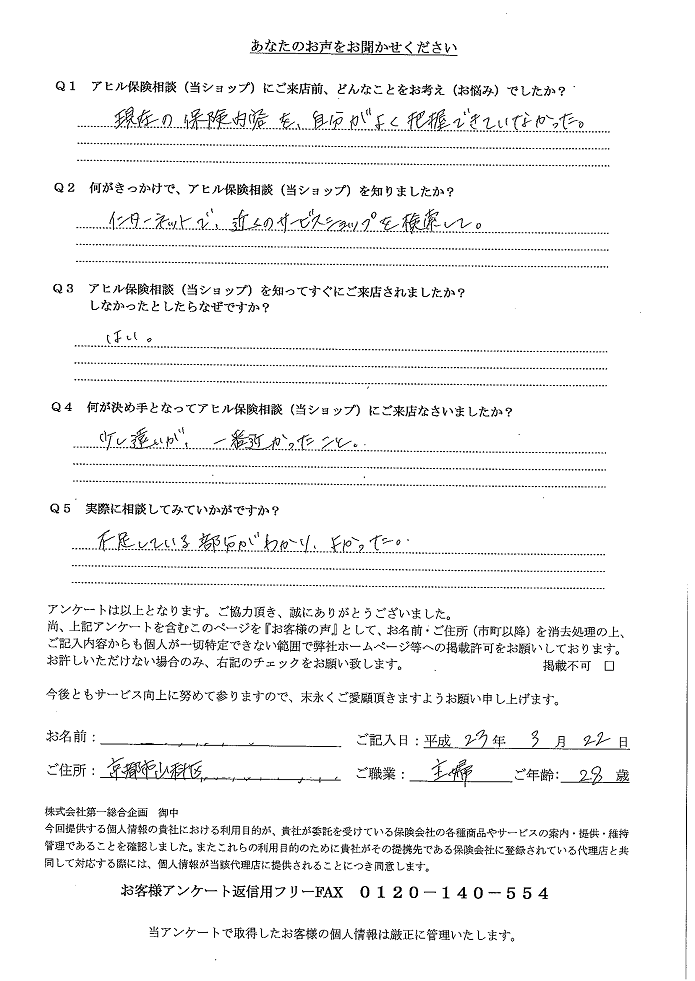 あなたのお声をお聞かせください
Q1 アヒル保険相談(当ショップ)にご来店前、どんなことをお考え(お悩み)でしたか?
現在の保険内容を、自分がよく把握できていなかった。
Q2 何がきっかけで、アヒル保険相談(当ショップ)を知りましたか?
インターネットで、近くのサービスショップを検索して。
Q3 アヒル保険相談(当ショップ)を知ってすぐにご来店されましたか?
しなかったとしたらなぜですか?
はい。
Q4 何が決め手となってアヒル保険相談(当ショップ)にご来店なさいましたか?
少し遠いが、一番近かったこと。
Q5 実際に相談してみていかがですか?
不足している部分がわかり、よかった。
アンケートは以上となります。ご協力頂き、誠にありがとうございました。
尚、上記アンケートを含むこのページを『お客様の声』として、お名前・ご住所(市町以降)を消去処理の上、
ご記入内容からも個人が一切特定できない範囲で弊社ホームページ等への掲載許可をお願いしております。
お許しいただけない場合のみ、右記のチェックをお願い致します。 掲載不可 □
今後ともサービス向上に努めて参りますので、末永くご愛顧頂きますようお願い申し上げます。
お名前: ご記入日:平成 23年 3月 22日
ご住所:京都市山科区 ご職業:主婦 ご年齢:28歳
株式会社第一総合企画 御中
今回提供する個人情報の貴社における利用目的が、貴社が委託を受けている保険会社の各種商品やサービスの案内・提供・維持
管理であることを確認しました。またこれらの利用目的のために貴社がその提携先である保険会社に登録されている代理店と共
同して対応する際には、個人情報が当該代理店に提供されることにつき同意します。
お客様アンケート返信用フリーFAX 0120-140-554
当アンケートで取得したお客様の個人情報は厳正に管理いたします。